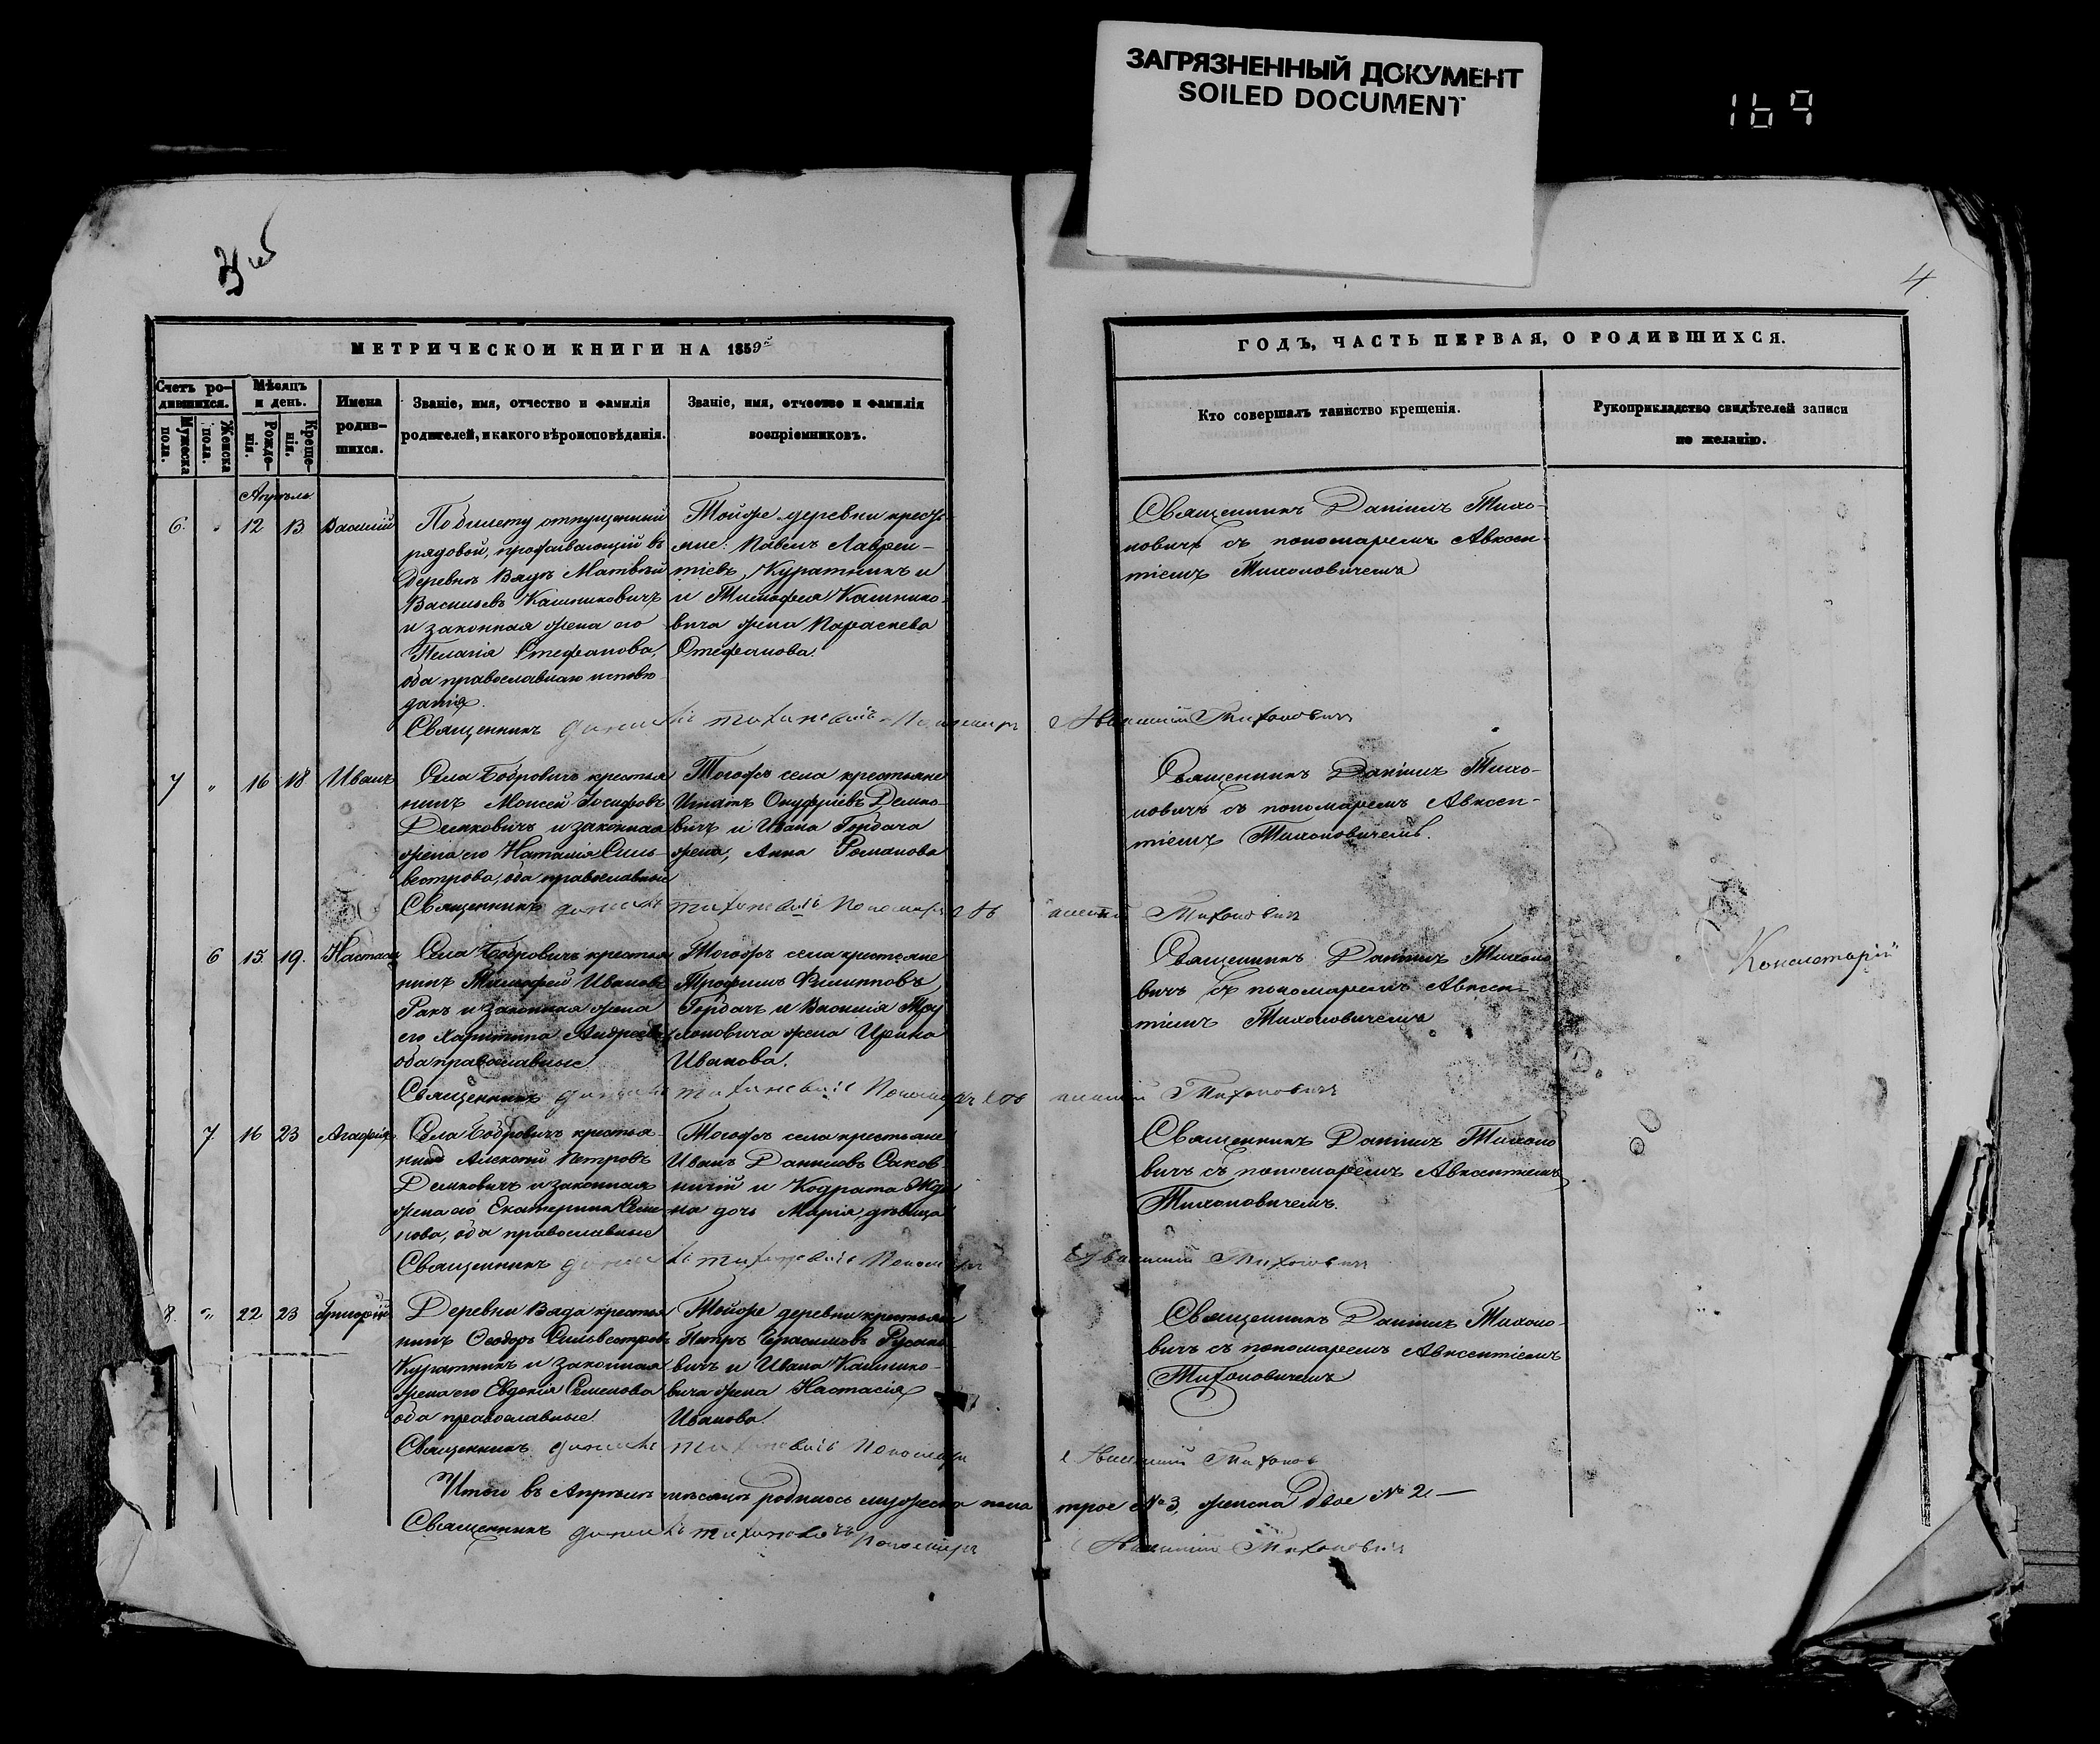 ЗАГРЯЗНЕННЫЙ ДОКУМЕНТ
SOILED DOCUMENT
169
4
МЕТРИЧЕСКОЙ КНИГИ НА 1859й
ГОДЪ, ЧАСТЬ ПЕРВАЯ, О РОДИВШИХСЯ.
Счетъ ро-
дившихся.
Мужеска пола.
Женска пола.
Мѣсяцъ
и день.
Рожде-
нія.
Креще-
нія.
Имена
родив-
шихся.
Званіе, имя, отчество и фамилія
родителей, и какого вѣроисповѣданія.
Званіе, имя, отчество и фамилія
воспріемниковъ.
Кто совершалъ таинство крещенія.
Рукоприкладство свидѣтелей записи
по желанію.
Апрѣль
6. " 12 13 Василій
По билету отпущенный
рядовой, проживающій въ
деревнѣ Вядѣ Матвѣй
Васильевъ Калинковичъ
и законная жена его
Пелагія Стефанова,
оба православнаго исповѣ
данія.
Тойже деревни кресть
яне: Павелъ Лаврен-
тіевъ Куратникъ и
и Тимофея Калинко-
вича жена Параскева
Стефанова.
Священникъ Даніилъ Тихо-
новичъ съ пономаремъ Авксен-
тіемъ Тихоновичемъ
Священникъ Данилъ Тихановичъ Пономарь Авксентій Тихоновичъ
7 " 16 18 Иванъ
Села Бобровичъ крестья
нинъ Моисей Іосифовъ
Демковичъ и законная
жена его Наталія Силь-
вестрова, оба православные
Тогожъ села крестьяне
Игнатъ Онуфріевъ Демко-
вичъ и Ивана Гордача
жена, Анна Романова
Священникъ Даніилъ Тихо-
новичъ съ пономаремъ Авксен-
тіемъ Тихоновичемъ.
Священникъ Данилъ Тихановичъ Пономарь Авксентій Тихоновичъ
6 15. 19. Настасія
Села Бобровичъ крестья
нинъ Тимофей Ивановъ
Ракъ и законная жена
его Харитина Андреева
оба православные
Тогожъ села крестьяне
Трофимъ Филипповъ
Гордачъ и Василія Тру
хоновича жена Ирина
Иванова.
Священникъ Даніилъ Тихоно
вичъ съ пономаремъ Авксен-
тіемъ Тихоновичемъ
Консисторіи
Священникъ Данилъ Тихановичъ Пономарь Авксентій Тихоновичъ
7. 16 23 Агафія
Села Бобровичъ крестья
нинъ Алексѣй Петровъ
Демковичъ и законная
жена его Екатерина Семе
нова, оба православные
Тогожъ села крестьяне
Иванъ Даниловъ Саков
ничій и Кодрата Жда
на дочь Марія, дѣвица
Священникъ Даніилъ Тихоно
вичъ съ пономаремъ Авксентіемъ
Тихоновичемъ.
Священникъ Данилъ Тихановичъ Пономарь Авксентій Тихоновичъ
8. " 22 23 Григорій
Деревни Вяда крестья
нинъ Ѳеодоръ Сильвестровъ
Куратникъ и законная
жена его Евдокія Семенова
оба православные.
Тойже деревни крестьяне
Петръ Герасимовъ Русако
вичъ и Ивана Калинко-
вича жена Настасія
Иванова.
Священникъ Даніилъ Тихоно-
вичъ съ пономаремъ Авксентіемъ
Тихоновичемъ
Священникъ Данилъ Тихановичъ Пономарь Авксентій Тихонов
Итого въ Апрѣлѣ мѣсяцѣ родилось мужеска пола трое №3, женска двое №2.—
Священникъ Данилъ Тихановичъ Пономарь Авксентій Тихоновичъ